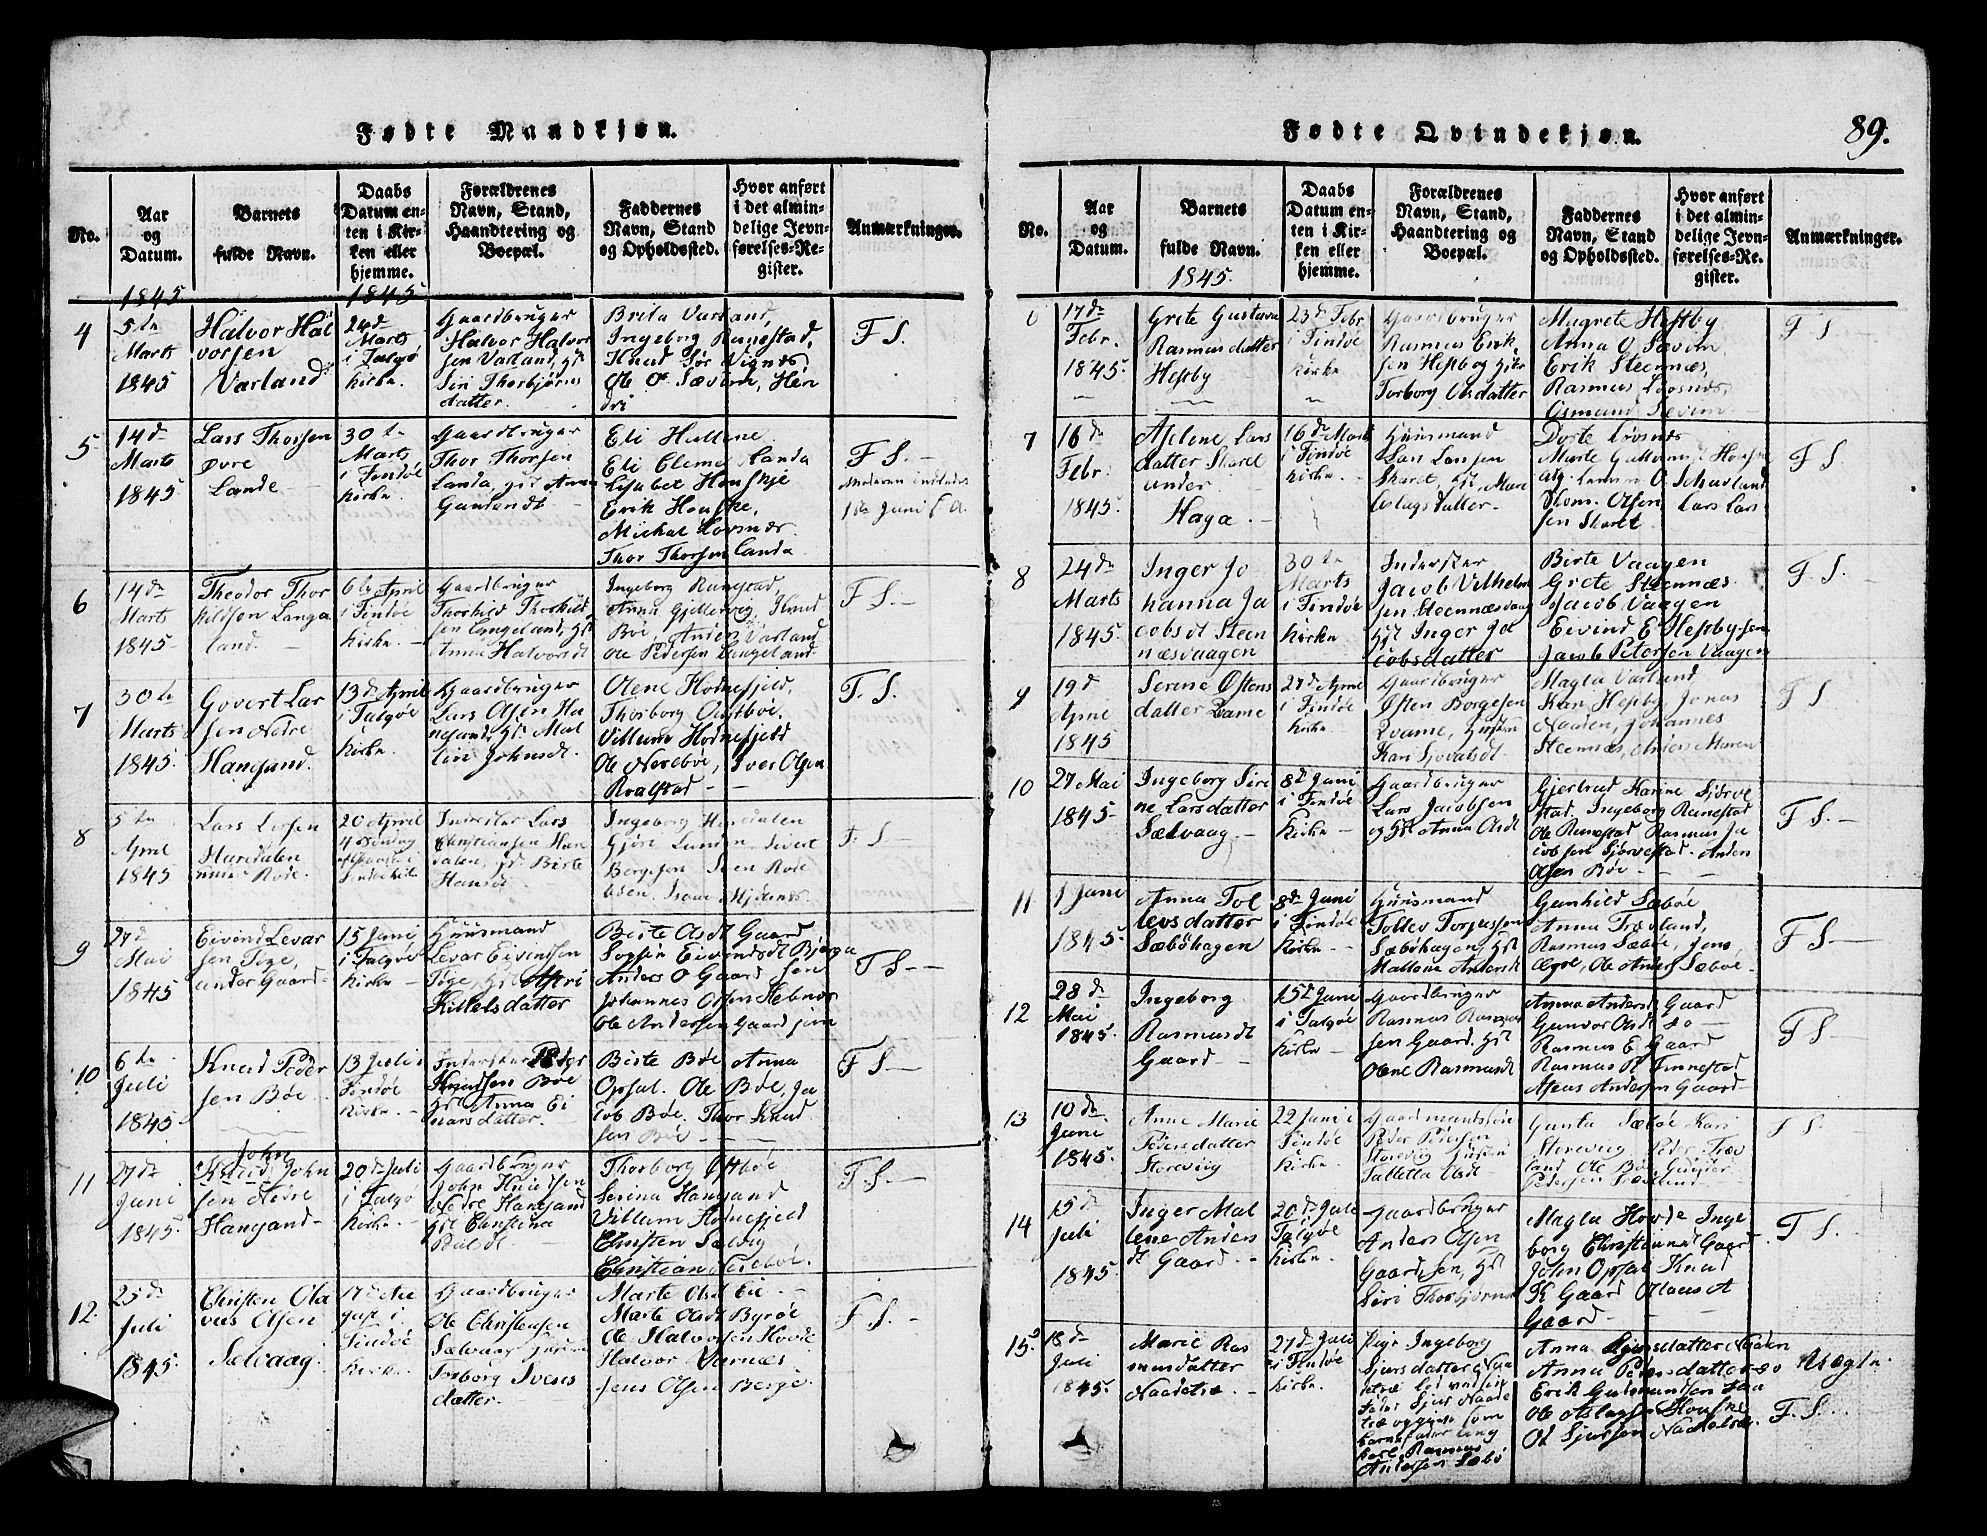 Fødte Mandkjøn.
No.
Aar
og
Datum.
Barnets
fulde Navn.
Daabs
Datum en-
ten i Kir-
ken eller
hjemme.
Forældrenes
Navn, Stand,
Haandtering og
Boepæl.
Faddernes
Navn, Stand
og Opholdssted.
Hvor anført
i det almin-
delige Jevn-
førelses-Re-
gister.
Anmærkninger.
1845
1845
4
5te
Marts
1845
Halvor Hal
vorsen
Varland
24d
Marts
i Talgø
Kirke.
Gaardbruger
Halvor Halvor
sen Varland, Hst
Siri Thorbjørns
datter.
Brita Varland,
Ingeborg Runestad,
Knud Sør Vignes
Ole O. Sævern, Hen
dri
F S.
5
14de
Marts
1845
Lars Thorsen
Dore
Lande
30te
Marts
i Findøe
Kirke
Gaardbruger
Thor Thorsen
Landa, Hst Anna
Gautsdt
Eli Hallene
Eli Cleme Landa
Lisabet Houskje
Erik Houske,
Michal Lovsnæs
Thor Thorsen Landa
F S.
Moderen indledes
1ste Juni f A.
6
14de
Marts
1845
Theodor Thor
kildsen Langa
land.
6te April
i Findøe
Kirke
Gaardbruger
Thorkild Thorkild
sen Langeland, Hst
Anna Halvorsdt
Ingeborg Runestad,
Anna Gjillesvig, Knud
Bøe, Anders Varland
Ole Pedersen Langeland
F S.
7
30te
Marts
1845
Govert Lar
sen Nedre
Hanesand.
13de April
i Talgøe
Kirke.
Gaardbruger
Lars Olsen Ha
nesand, Hst Mal
lin Johnsdt
Olene Hodnefjeld,
Thorborg Austbøe.
Villum Hodnefjeld
Ole Nedebøe, Iver Olsen
Kvalstad
F. S.
8
5te
April
1845
Lars Larsen
Haredalen
under Rode.
20 April
Inderster Lars
Christiansen Har
dalen, Hst Birte
Hansdt
Ingeborg Haredalen
Gjøre Lunden Sivert
Bergesen Sven Rode
F S
9
27d
Mai
1845
Eivind Levar
sen Tøge,
under Gaard
15 Juni
i Talgøe
Kirke
Huusmand
Levar Eivindsen
Tøge, Hst Astri
Kittelsdatter
Birte Olsdt Gaard
Sophie Eivindsdt Bjerga
Anders O Gaard sen
Johannes Olsen Hebnes
Ole Andersen Gaard sen
F S
10
6te
Juli
1845
Knud Peder
sen Bøe
13 Juli i
Findøe
Kirke
Inderster Peder
Knudsen Bøe
Hst Anna Ei
narsdatter.
Birte Bøe Anna
Opsal. Ole Bøe, Ja
cob Bøe, Thor Knud
sen Bøe
F S.
11
27de
Juni
1845
John
Knud John
sen Nedre
Hanesand
20de Juli
i Talgø
Kirke
Gaardbruger
John Knudsen
Nedre Hanesand
Hst Christina
Thorborg Østbøe
Serina Hanesand
Villum Hodnefjeld
Christen Selvig
Christian Nedebøe.
F. S.
12.
25de
Juli
1845.
Christen Ola
vus Olsen
Sælvaag.
17de Au
gust i
Findøe
Kirke
Gaardbruger
Ole Christensen
Sælvaag Hustru
Torborg Ivers
datter.
Marte Olsdt Eie
Marte Olsdt Byrøe
Ole Halvorsen Hovde
Halvor Varnæs
Jens Olsen Berge
F. S.
Fødte Qvindekjøn.
89.
No.
Aar
og
Datum.
Barnets
fulde Navn.
1845.
Daabs
Datum en-
ten i Kir-
ken eller
hjemme.
Forældrenes
Navn, Stand,
Haandtering og
Boepæl.
Faddernes
Navn, Stand
og Opholdssted.
Hvor anført
i det almin-
delige Jevn-
førelses-Re-
gister.
Anmærkninger.
6
17de
Febr.
1845.
Grete Gustava
Rasmusdatter
Hesby
23de Febr
i Findøe
Kirke
Gaardbruger
Rasmus Erik
sen Hesby Hst
Torborg Olsdatter
Magrete Hesby
Anna O Sævern.
Erik Steennæs,
Rasmus Lovsnæs,
Osmund Sævern
F S
7
16de
Febr.
1845.
Aselene Lars
datter Skaret
under
Haga.
16de Marts
i Findøe
Kirke.
Huusmand
Lars Larsen
Skaret, Hst, Mari
Aslagsdatter.
Dorte Lovsnæs
Marte
O. Schartland
Thom. Olsen
Lars Lar-
sen Skaret.
F S.
8
24de
Marts
1845.
Inger Jo
hanna Ja
cobsdt Steen
næsvaagen
30te
Marts
i Findøe
Kirke
Inderster
Jacob Vilhelm
sen Steennæsvaag
Hst Inger Ja
cobsdatter
Birte Vaagen
Grete Steennæs.
Jacob Vaagen
Eivind E Hesbysen
Jacob Petersen Vaagen
F. S.
9
19d
April
1845
Serine Østens
datter Qvame
27de April
i Findøe
Kirke.
Gaardbruger
Østen Borgesen
Qvame, Hustru
Kari Sjovatsdt
Magla Varland
Kari Hesby Jonas
Naaden, Johannes
Steennæs, Anders Maren
F S
10
27 Mai
1845
Ingeborg Siri
ne Larsdatter
Sælvaag.
8de Juni
i Findøe
Kirke
Gaardbruger
Lars Jacobsen
og Hst Anna Olsdt
Gjertrud Karine Sjørve
stad. Ingeborg Runestad
Ole Runestad Rasmus Ja
cobsen Sjørvestad. Anders
Olsen Bøe
F S.
11
1 Juni
1845.
Anna Tol
levsdatter
Sæbøhagen
8de Juni
i Findøe
Kirke
Huusmand
Tollev Torjussen
Sæbøhagen Hst
Mallene Andersdt
Gunhild Sæbøe
Anna Trævland,
Rasmus Sæbøe, Jens
Ægøe, Ole Anders Sæbøe
F S
12
28de
Mai
1845.
Ingeborg
Rasmusdt
Gaard
15de Juni
i Talgøe
Kirke
Gaardbruger
Rasmus Rasmus
sen Gaard. Hst
Olene Rasmusdt
Anna Andersdt Gaard
Gunvor Olsdt do
Rasmus E Gaard
Rasmus R Finnestad
Aseus Andersen Gaard
F S
13
10de
Juni
1845.
Anne Marie
Pedersdatter
Storeviig
22 Juni i
Findøe
Kirke.
Gaardmandssøn
Peder Pedersen
Storeviig Hustru
Talletta Olsdt
Gunla Sæbøe Kari
Storeviig Peder Træv
land Ole Bøe, Gunder
Pedersen Trævland
F S.
14
15de
Juli
1845.
Inger Mal
lene Anders
dt Gaard.
20de Juli
Talgøe
Kirke.
Gaardbruger
Anders Olsen
Gaard sen, Hst
Siri Thorbjørns
Magla Hovde Inge
borg Christiansdt Gaard
John Opsal Knud
K Gaard Olaus A
Gaard
F. S.
15.
18de
Juli
1845.
Marie Ras
musdatter
Naadetræ
27de Juli
i Findøe
Kirke.
Pige Ingeborg
Sjursdatter Naa
detræ
Fader Sjur Naade
træ opgives som
barnefader ung
karl, Rasmus
Andersen Sæbø
Anna Sjursdatter Naaden
Anna Pedersdatter do
Erik Gudmundsen Haa
Ole Aslagsen Houske
Ole Sjursen Naadetræ.
Uægte.
F. S.